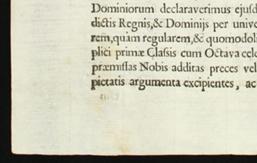 Dominiorum declaraverimus ejusd
dictis Regnis, & Dominijs per unive
rem, quam regularem, & quomodoli
plici primæ Classis cum Octava cele
præmissas Nobis additas preces vel
pietatis argumenta excipientes, ac